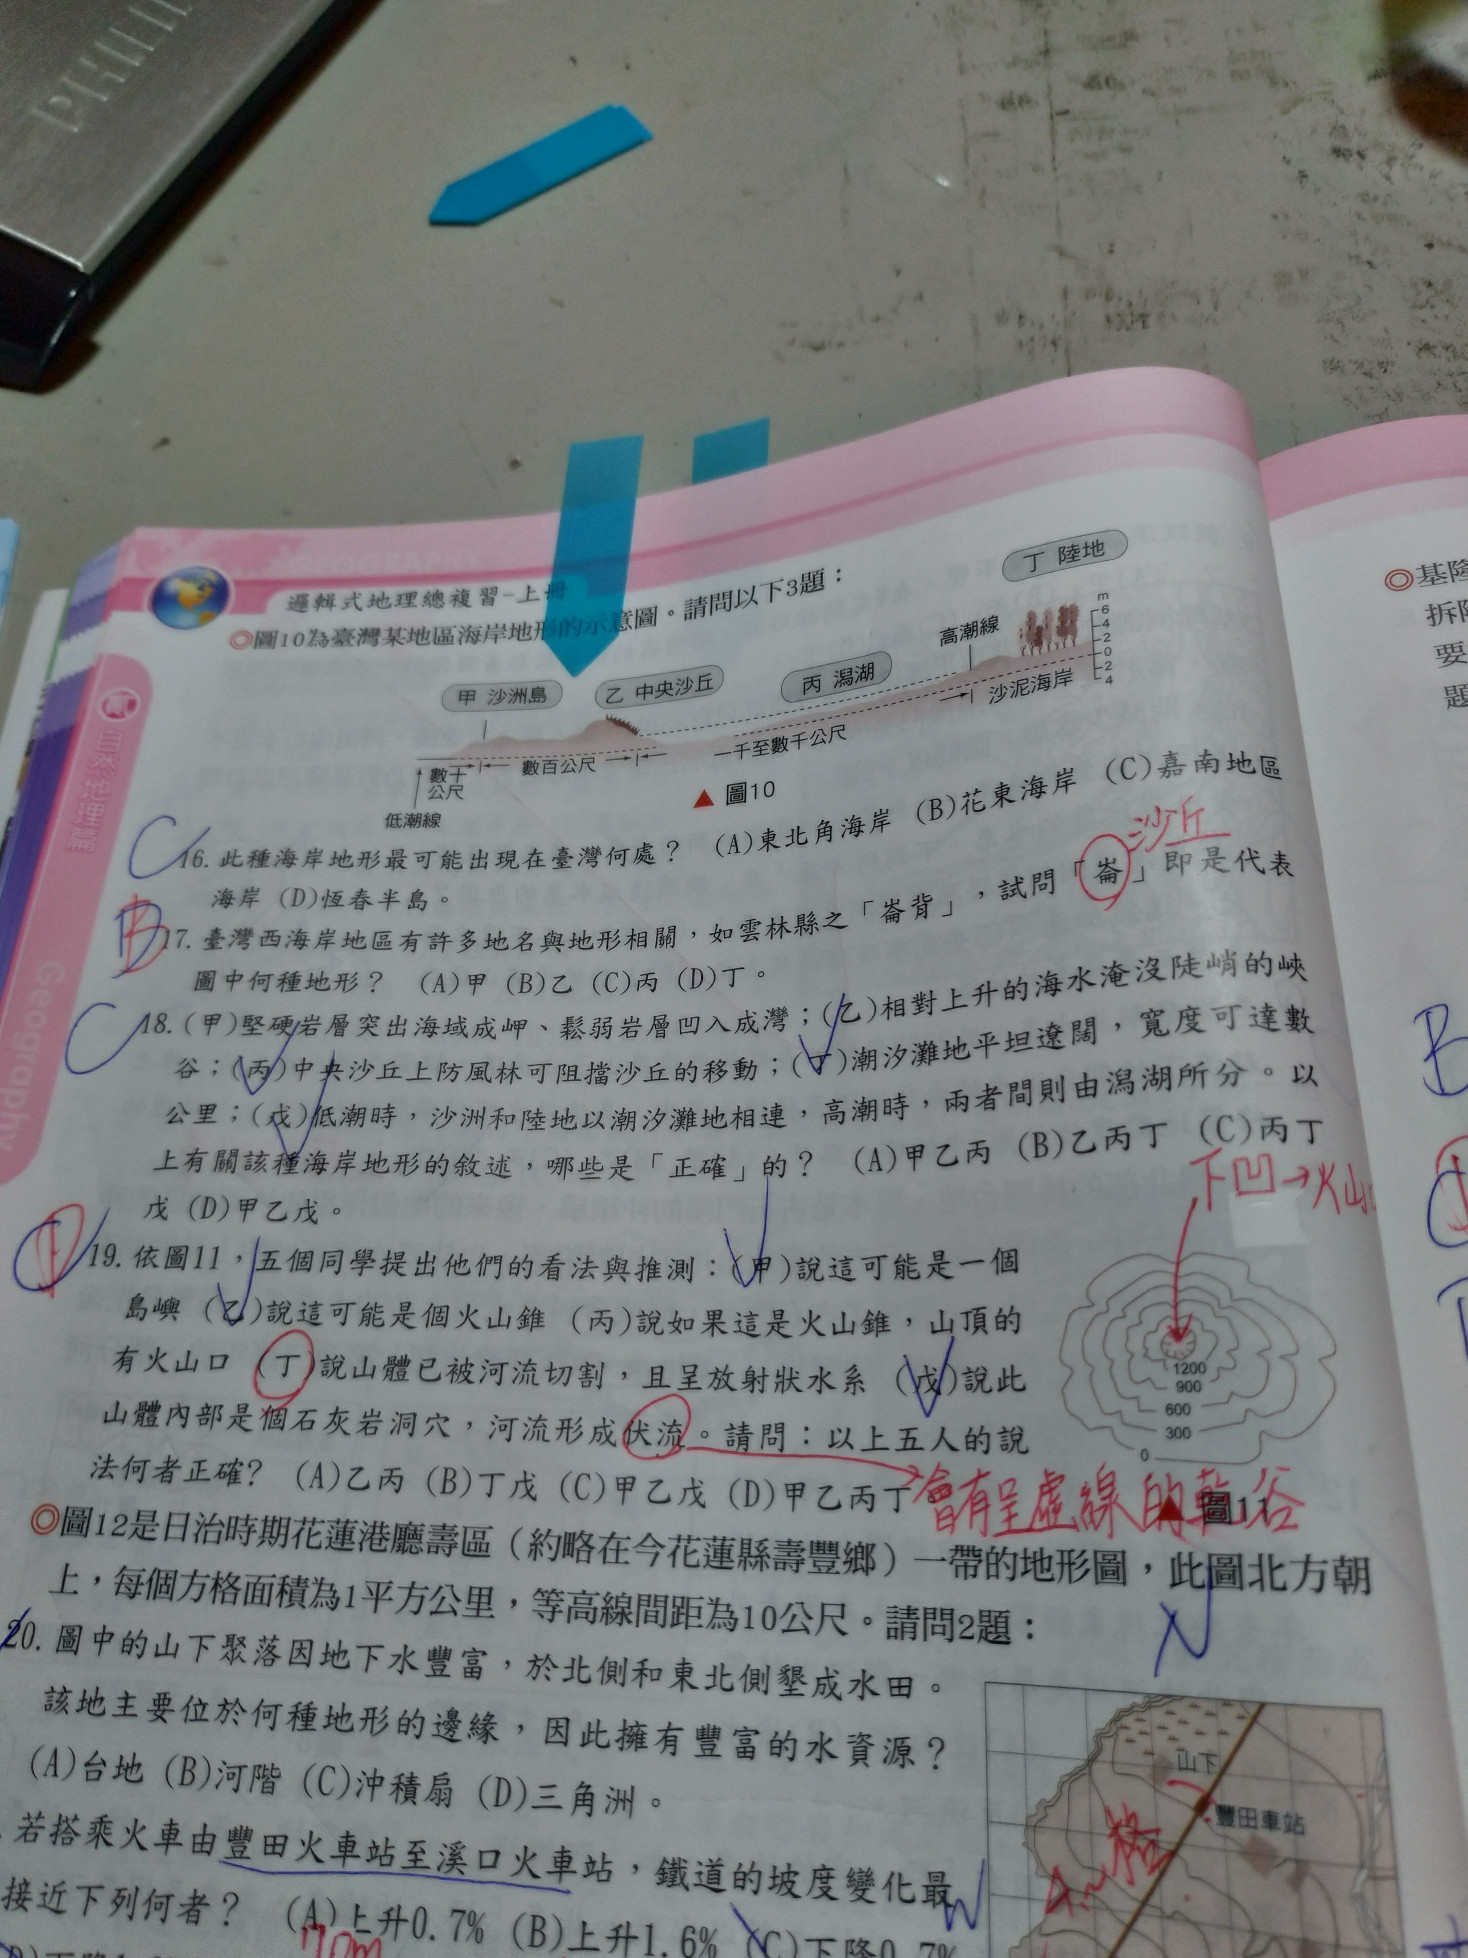 PHILI
邏輯式地理總複習-上冊
貳 自然地理篇
Geography
◎圖10為臺灣某地區海岸地形的示意圖。請問以下3題：
丁 陸地
高潮線
m
6
4
2
0
2
4
甲 沙洲島
乙 中央沙丘
丙 潟湖
沙泥海岸
數十公尺
數百公尺
一千至數千公尺
低潮線
▲ 圖10
C
16. 此種海岸地形最可能出現在臺灣何處？ (A)東北角海岸 (B)花東海岸 (C)嘉南地區
海岸 (D)恆春半島。
沙丘
B
17. 臺灣西海岸地區有許多地名與地形相關，如雲林縣之「崙背」，試問「崙」即是代表
圖中何種地形？ (A)甲 (B)乙 (C)丙 (D)丁。
C
18. (甲)堅硬岩層突出海域成岬、鬆弱岩層凹入成灣；(乙)相對上升的海水淹沒陡峭的峽
谷；(丙)中央沙丘上防風林可阻擋沙丘的移動；(丁)潮汐灘地平坦遼闊，寬度可達數
公里；(戊)低潮時，沙洲和陸地以潮汐灘地相連，高潮時，兩者間則由潟湖所分。以
上有關該種海岸地形的敘述，哪些是「正確」的？ (A)甲乙丙 (B)乙丙丁 (C)丙丁
戊 (D)甲乙戊。
下凹→火山
19. 依圖11，五個同學提出他們的看法與推測：(甲)說這可能是一個
島嶼 (乙)說這可能是個火山錐 (丙)說如果這是火山錐，山頂的
有火山口 (丁)說山體已被河流切割，且呈放射狀水系 (戊)說此
山體內部是個石灰岩洞穴，河流形成伏流。請問：以上五人的說
法何者正確? (A)乙丙 (B)丁戊 (C)甲乙戊 (D)甲乙丙丁
1200
900
600
300
0
▲ 圖11
會有呈虛線的乾谷
◎圖12是日治時期花蓮港廳壽區（約略在今花蓮縣壽豐鄉）一帶的地形圖，此圖北方朝
上，每個方格面積為1平方公里，等高線間距為10公尺。請問2題：
N
20. 圖中的山下聚落因地下水豐富，於北側和東北側墾成水田。
該地主要位於何種地形的邊緣，因此擁有豐富的水資源？
(A)台地 (B)河階 (C)沖積扇 (D)三角洲。
山下
豐田車站
若搭乘火車由豐田火車站至溪口火車站，鐵道的坡度變化最
接近下列何者？ (A)上升0.7% (B)上升1.6% (C)下降0.7%
170m
W
◎基隆
拆
要
題
B